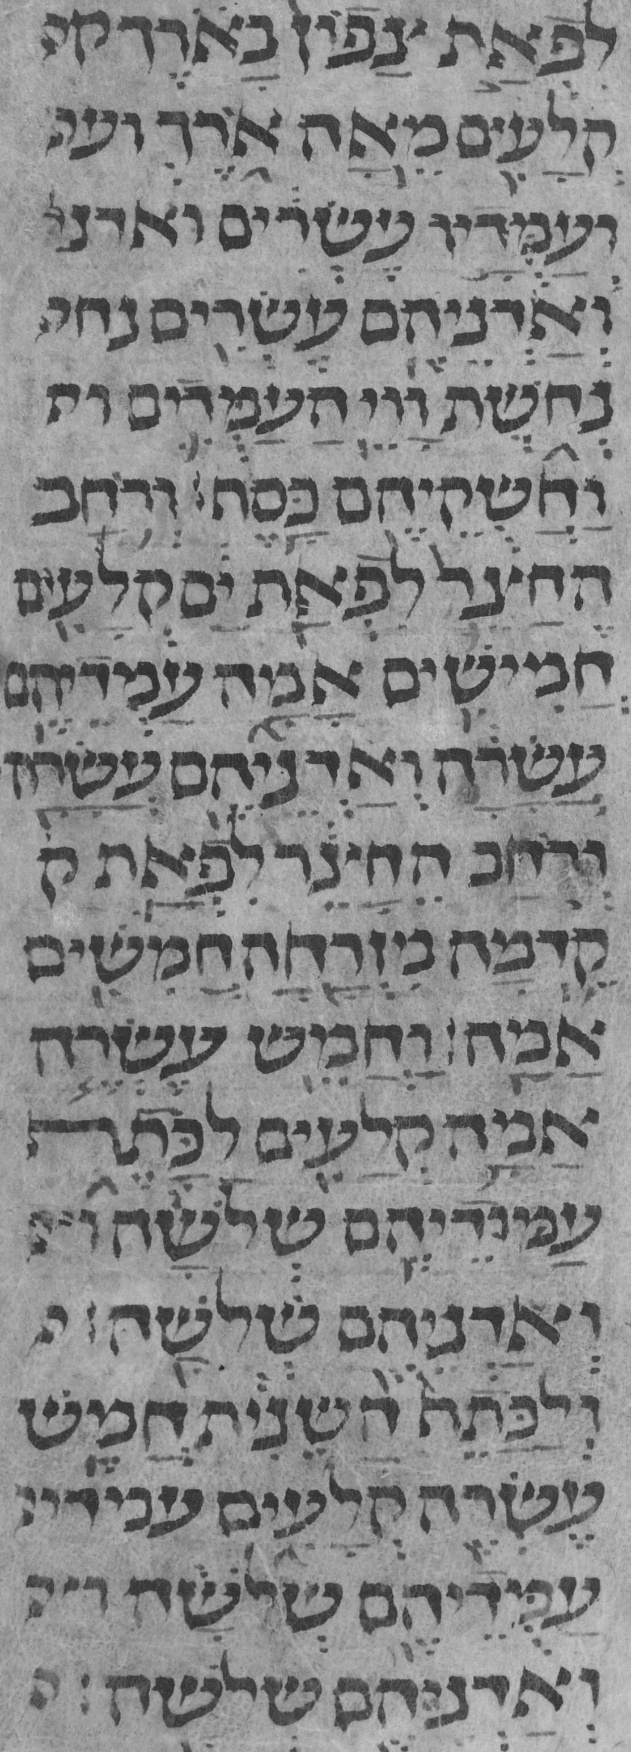 לפאת צפון בארך ק
קלעים מאה ארך וע
ועמדיו עשרים ואדנ
ואדניהם עשרים נח
נחשת ווי העמדים וח
וחשקיהם כסף׃ ורחב
החיצר לפאת ים קלעים
חמישים אמה עמדיהם
עשרה ואדניהם עשרה
ורחב החיצר לפאת ק
קדמה מזרחה חמשים
אמה׃ וחמש עשרה
אמה קלעים לכתף
עמודיהם שלשה וא
ואדניהם שלשה׃
ולכתף השנית חמש
עשרה קלעים עמדיה
עמדיהם שלשה וא
ואדניהם שלשה׃